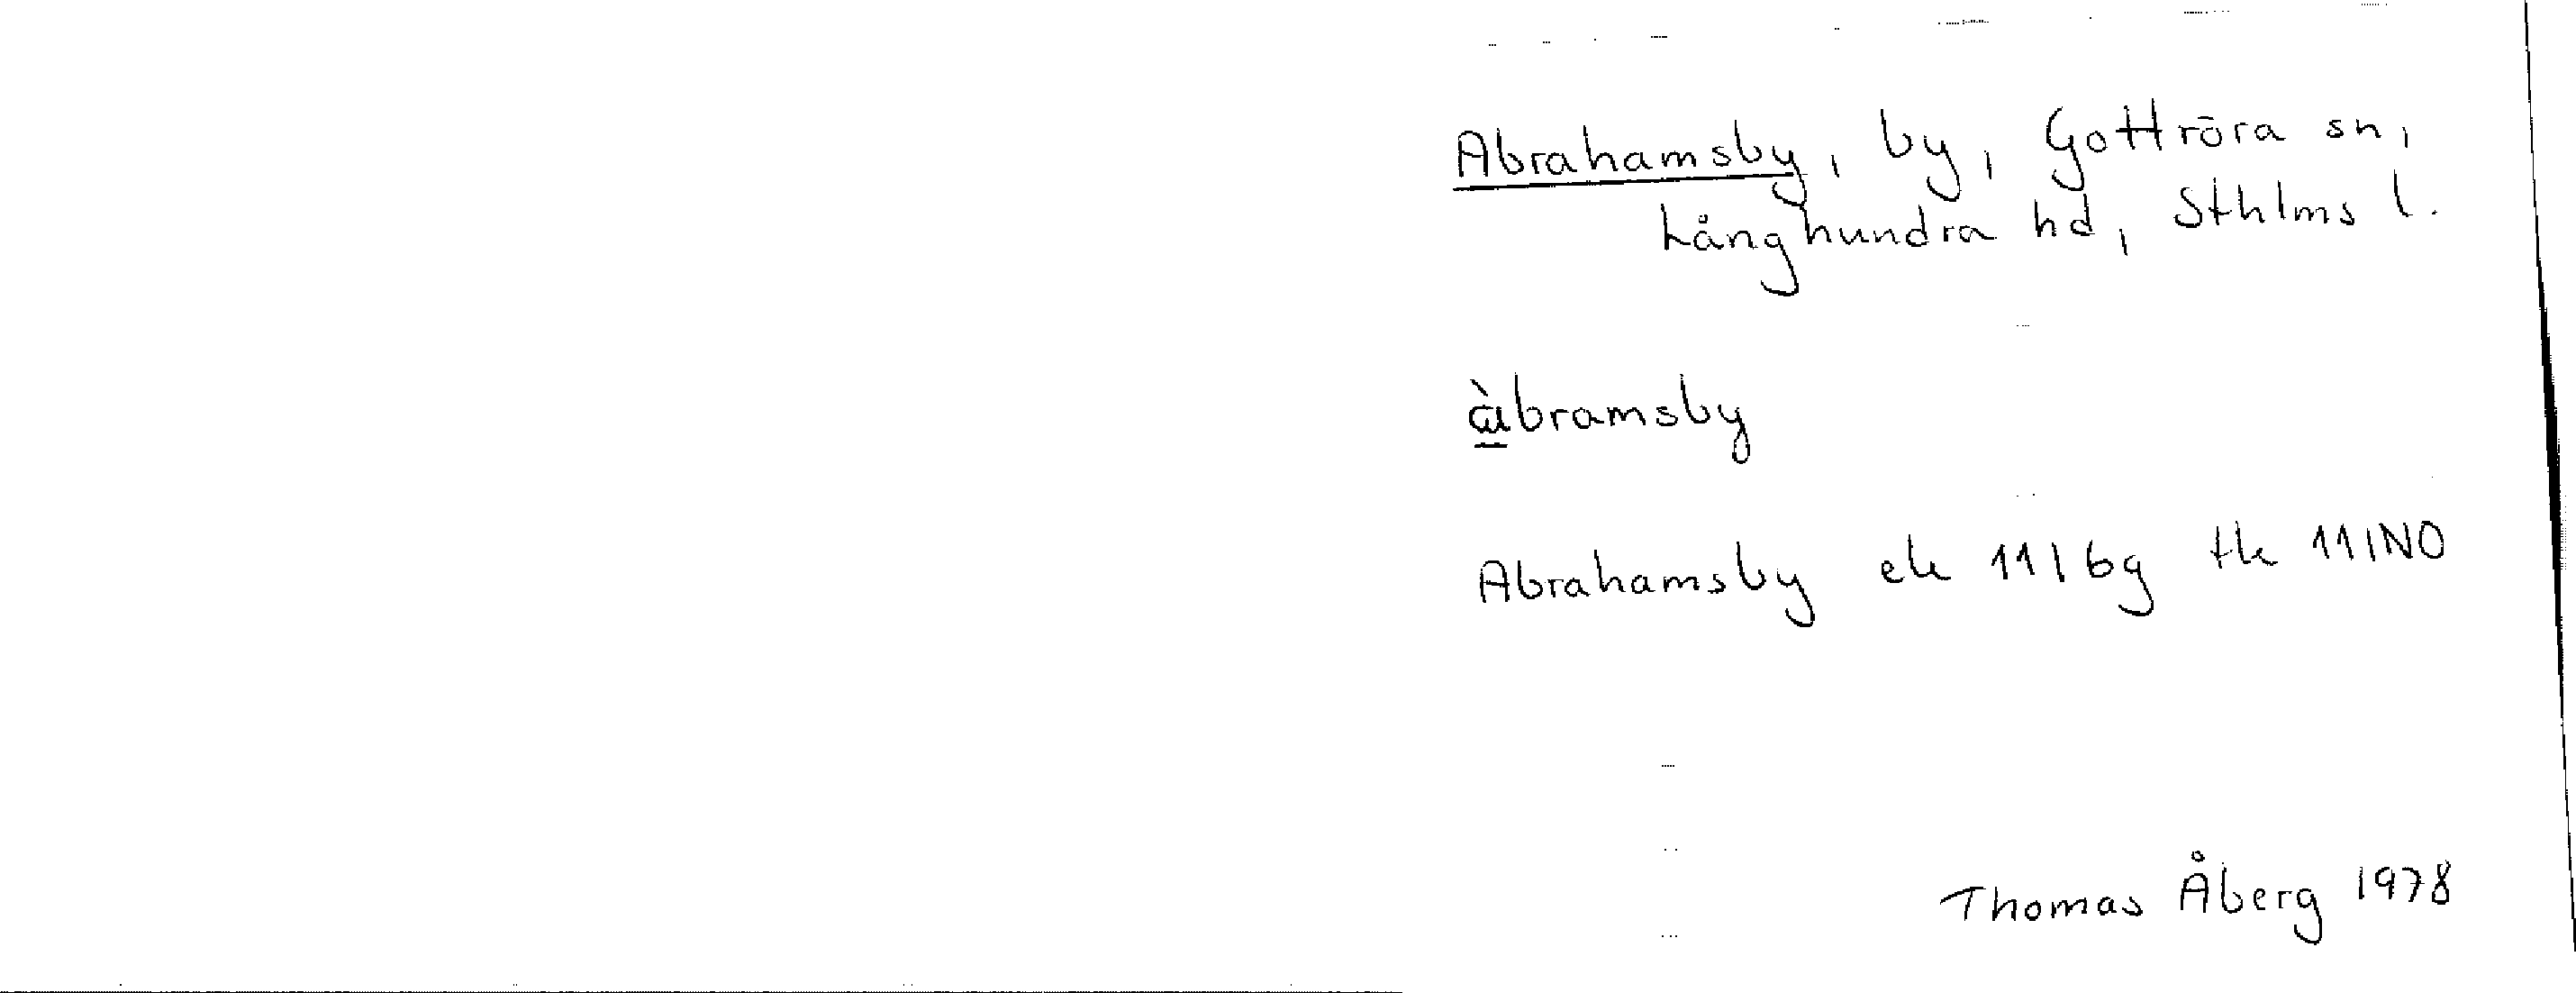 Abrahamsby, by, Gottröra sn,
Långhundra hd, Sthlms l.
àbramsby
Abrahamsby ek 11I 6g tk 11INO
Thomas Åberg 1978